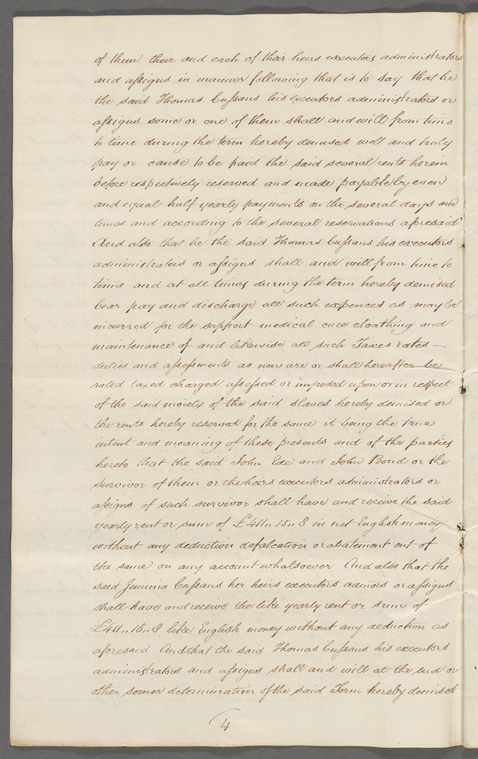 of them their and each of their heirs executors administrators
and assigns in manner following that is to say that he
the said Thomas Cussans his executors administrators or
assigns some or one of them shall and will from time
to time during the term hereby demised well and truly
pay or cause to be paid the said several rents herein
before respectively reserved and made payable by even
and equal half yearly payments on the several days and
times and according to the several reservations aforesaid
And also that he the said Thomas Cussans his executors
administrators or assigns shall and will from time to
time and at all times during the term hereby demised
bear pay and discharge all such expences as may be
incurred for the support medical care cloathing and
maintenance of and likewise all such Taxes rates —
duties and assessments as now are or shall hereafter be
rated taxed charged assessed or imposed upon or in respect
of the said moiety of the said slaves hereby demised or
the rents hereby reserved for the same it being the true
intent and meaning of these presents and of the parties
hereto that the said John Ede and John Bond or the
survivor of them or the heirs executors administrators or
assigns of such survivor shall have and receive the said
yearly rent or sum of £411.. 15.. 8 in net English money
without any deduction defalcation or abatement out of
the same on any account whatsoever And also that the
said Jemima Cussans her heirs executors admors or assigns
shall have and receive the like yearly rent or sum of
£411.. 15.. 8 like English money without any deduction as
aforesaid And that the said Thomas Cussans his executors
administrators and assigns shall and will at the end or
other sooner determination of the said Term hereby demised
4